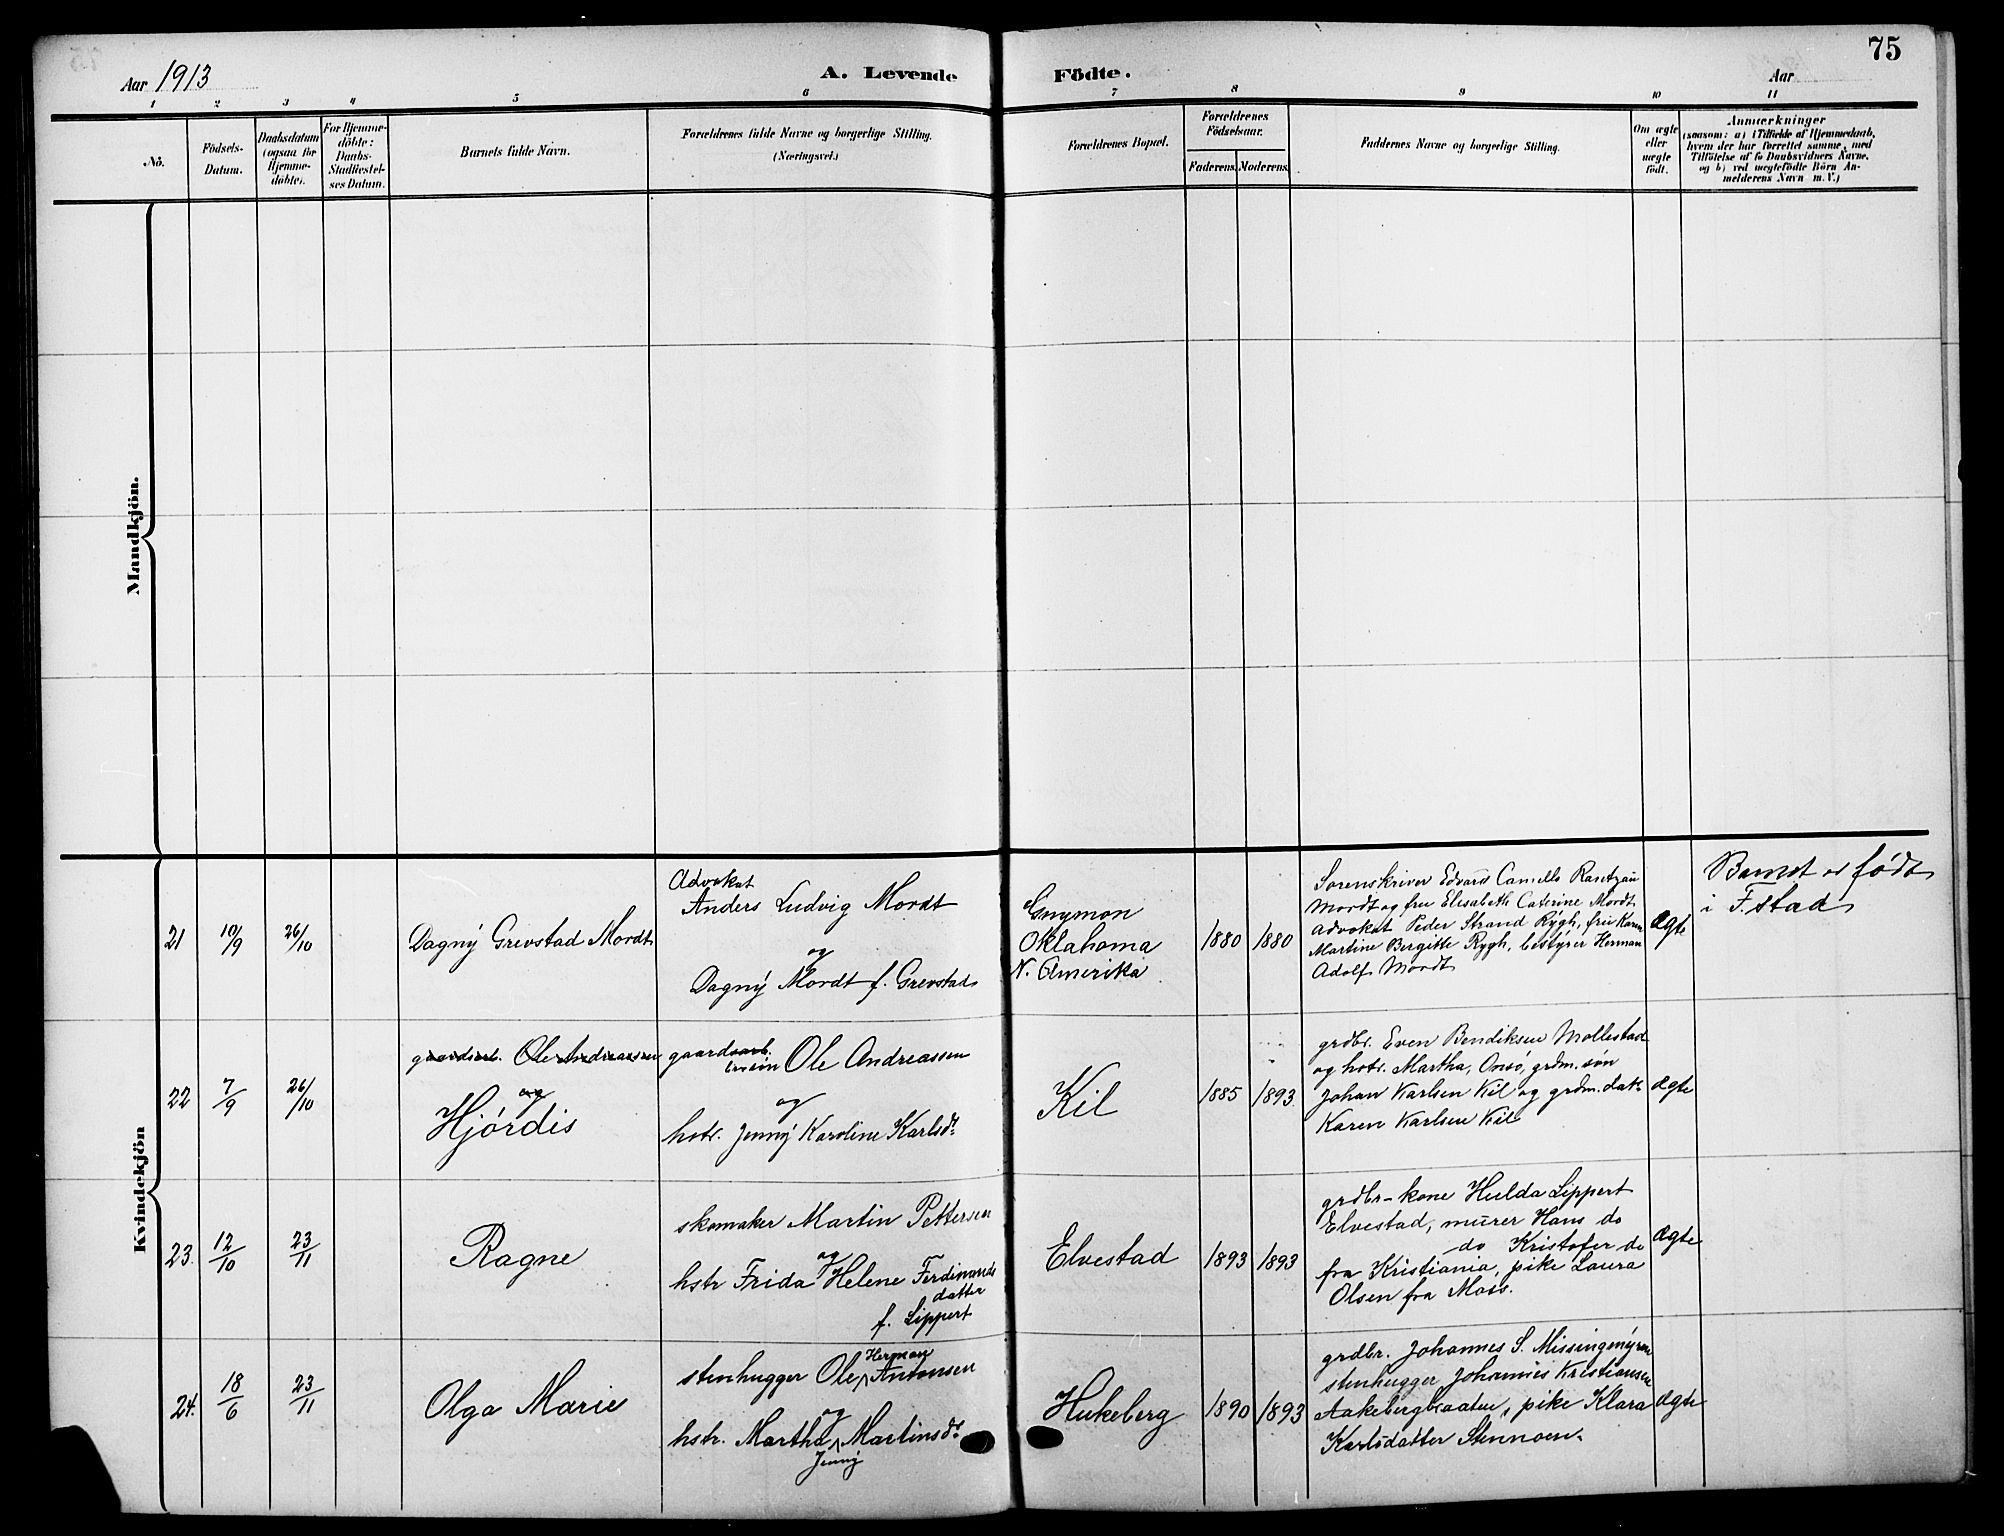 75
Aar 1913
A. Levende Födte.
Aar
1 2 3 4 5 6 7 8 9 10 11
No.
Födsels-
Datum.
Daabsdatum
(ogsaa for
Hjemme-
döbte).
For Hjemme-
döbte:
Daabs-
Stadfæstel-
ses Datum.
Barnets fulde Navn.
Forældrenes fulde Navne og borgerlige Stilling.
(Næringsvei.)
Forældrenes Bopæl.
Forældrenes
Födselsaar.
Faderens. Moderens.
Faddernes Navne og borgerlige Stilling.
Om ægte
eller
uægte
født.
Anmærkninger
(saasom: a) i Tilfælde af Hjemmedaab,
hvem der har forrettet samme, med
Tilföielse af to Daabsvidners Navne.
og b) ved uægtefödte Börn An-
melderens Navn m. V.)
Mandkjön.
Kvindekjön
21
10/9
26/10
Dagny Grevstad Mordt
Advokat
Anders Ludvig Mordt
og
Dagny Mordt f. Grevstad
Guymon
Oklahoma
N. Amerika
1880
1880
Sorenskriver Edvard Camillo Rantzau
Mordt og fru Elisabeth Caterine Mordt
advokat Peder Strand Rygh, frue Karen
Martine Bergitte Rygh, bestyrer Herman
Adolf Mordt
ægte
Barnet er født
i F.stad
22
7/9
26/10
gaardsarb. Ole Andreassen
og
Hjørdis
gaardsarb. Ole Andreassen
og
hstr. Jenny Karoline Karlsdt.
Kil
1885
1893.
grdbr. Even Bendiksen Mollestad
og hstr. Martha, Onsø, grdm. søn
Johan Karlsen Kil og grdm. datr
Karen Karlsen Kil
ægte
23.
12/10
23/11
Ragne
skomaker Martin Pettersen
og
hstr Frida Helene Ferdinands
datter
f. Lippert
Elvestad
1893
1893
grdbr-kone Hulda Lippert
Elvestad, murer Hans do
do Kristofer do
fra Kristiania, pike Laura
Olsen fra Moss.
ægte
24.
18/6
23/11
Olga Marie
Herman
stenhugger Ole Antonsen
og
hstr. Martha Martinsdt.
Jenny
Hukeberg
1890
1893
grdbr. Johannes S. Missingmyren
stenhugger Johannes Kristiansen
Aakebergbraaten, pike Klara
Karlsdatter Stenmoen.
ægte